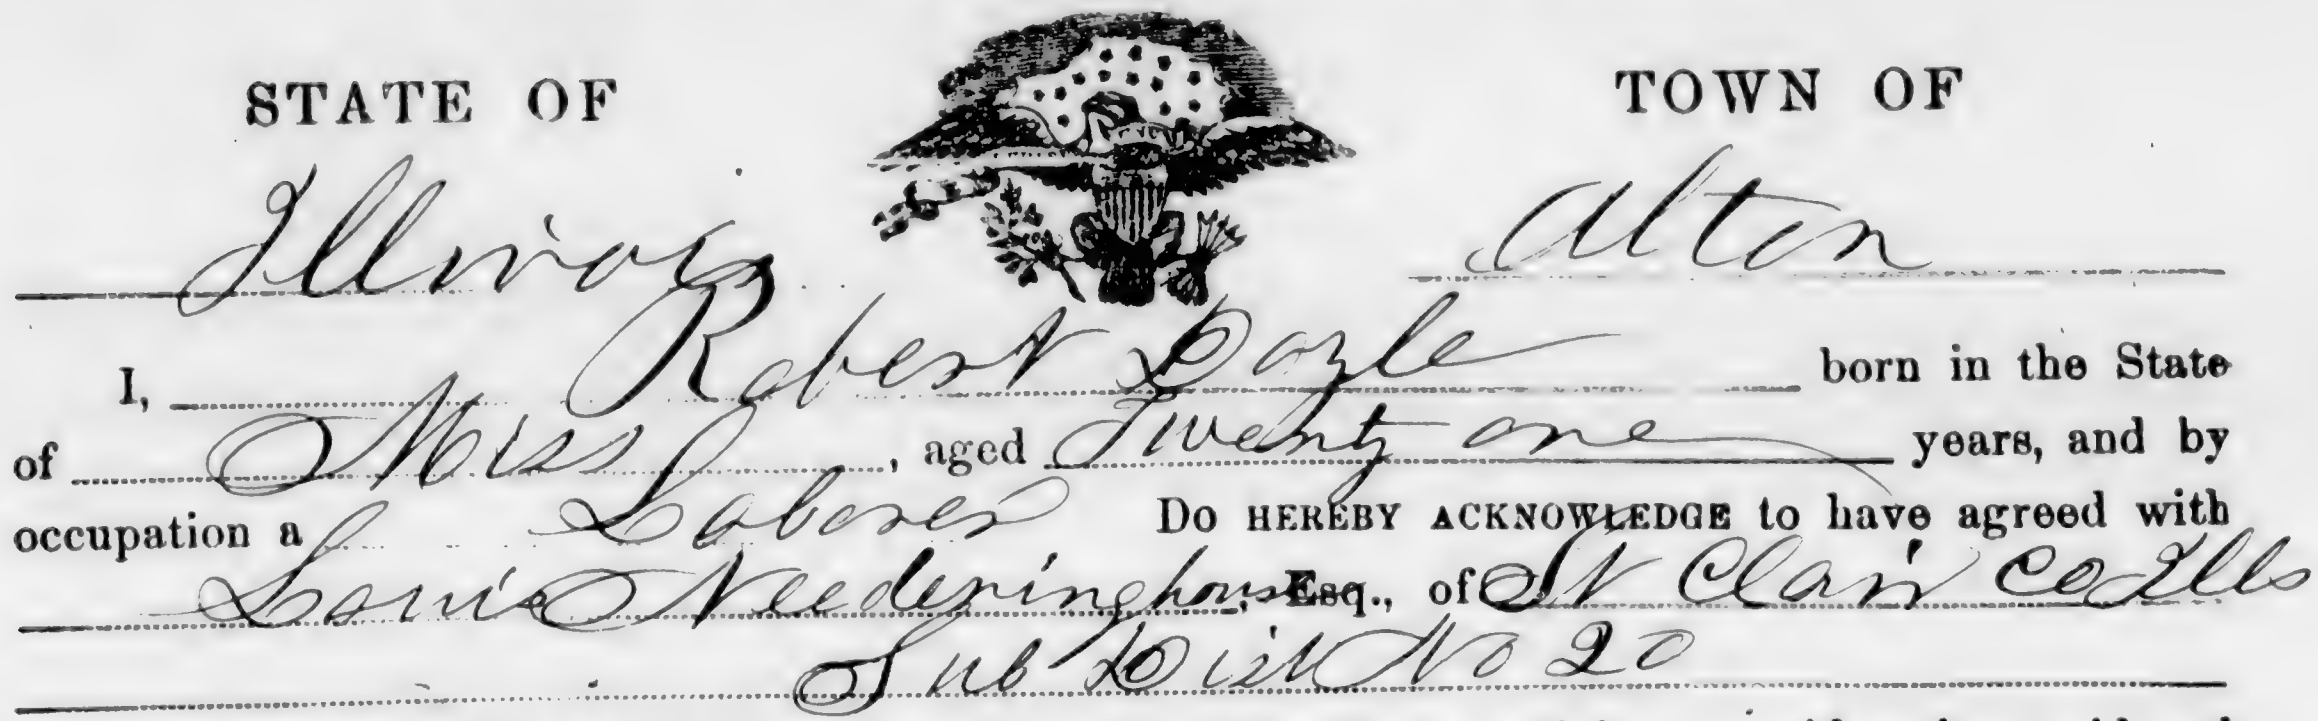 STATE OF TOWN OF
Illinois Alton
I, Robert Doyle born in the State
of Miss, aged Twenty one years, and by
occupation a Laborer Do HEREBY ACKNOWLEDGE to have agreed with
Louis Neederinghouse, Esq., of St Clair Co Ills
Sub Dist No 20